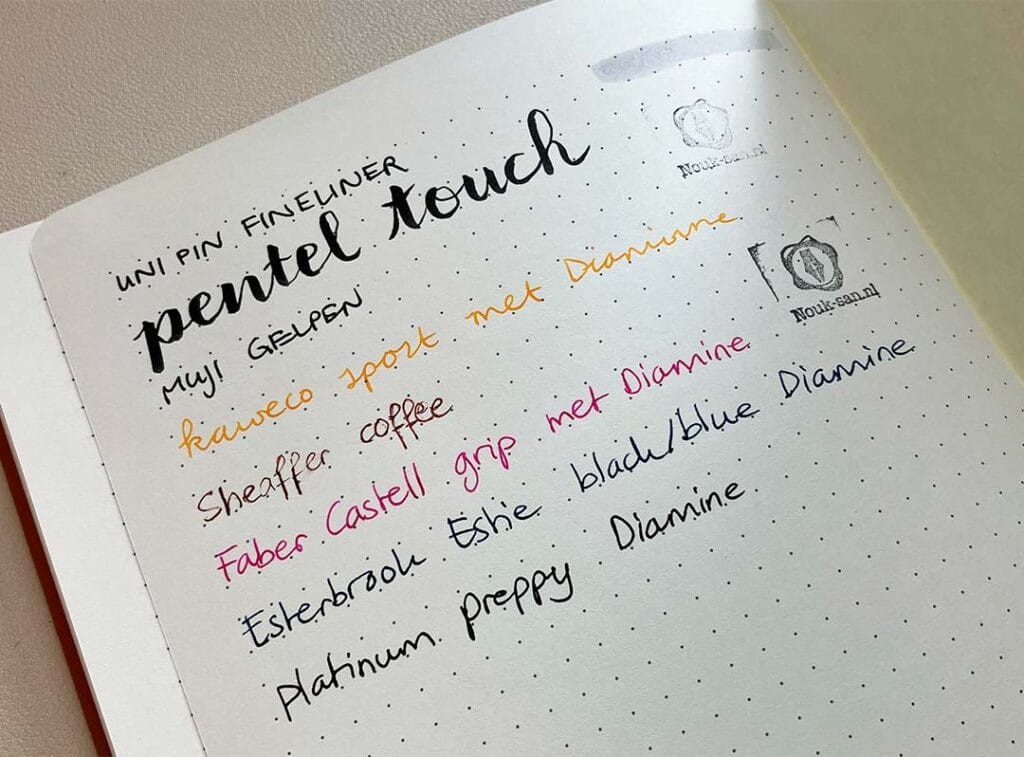 UNI PIN FINELINER
pentel touch
MUJI GELPEN
kaweco sport met Diamine
Sheaffer coffee
Faber Castell grip met Diamine
Esterbrook Estie black/blue Diamine
Platinum preppy Diamine
Nouk-san.nl
Nouk-san.nl